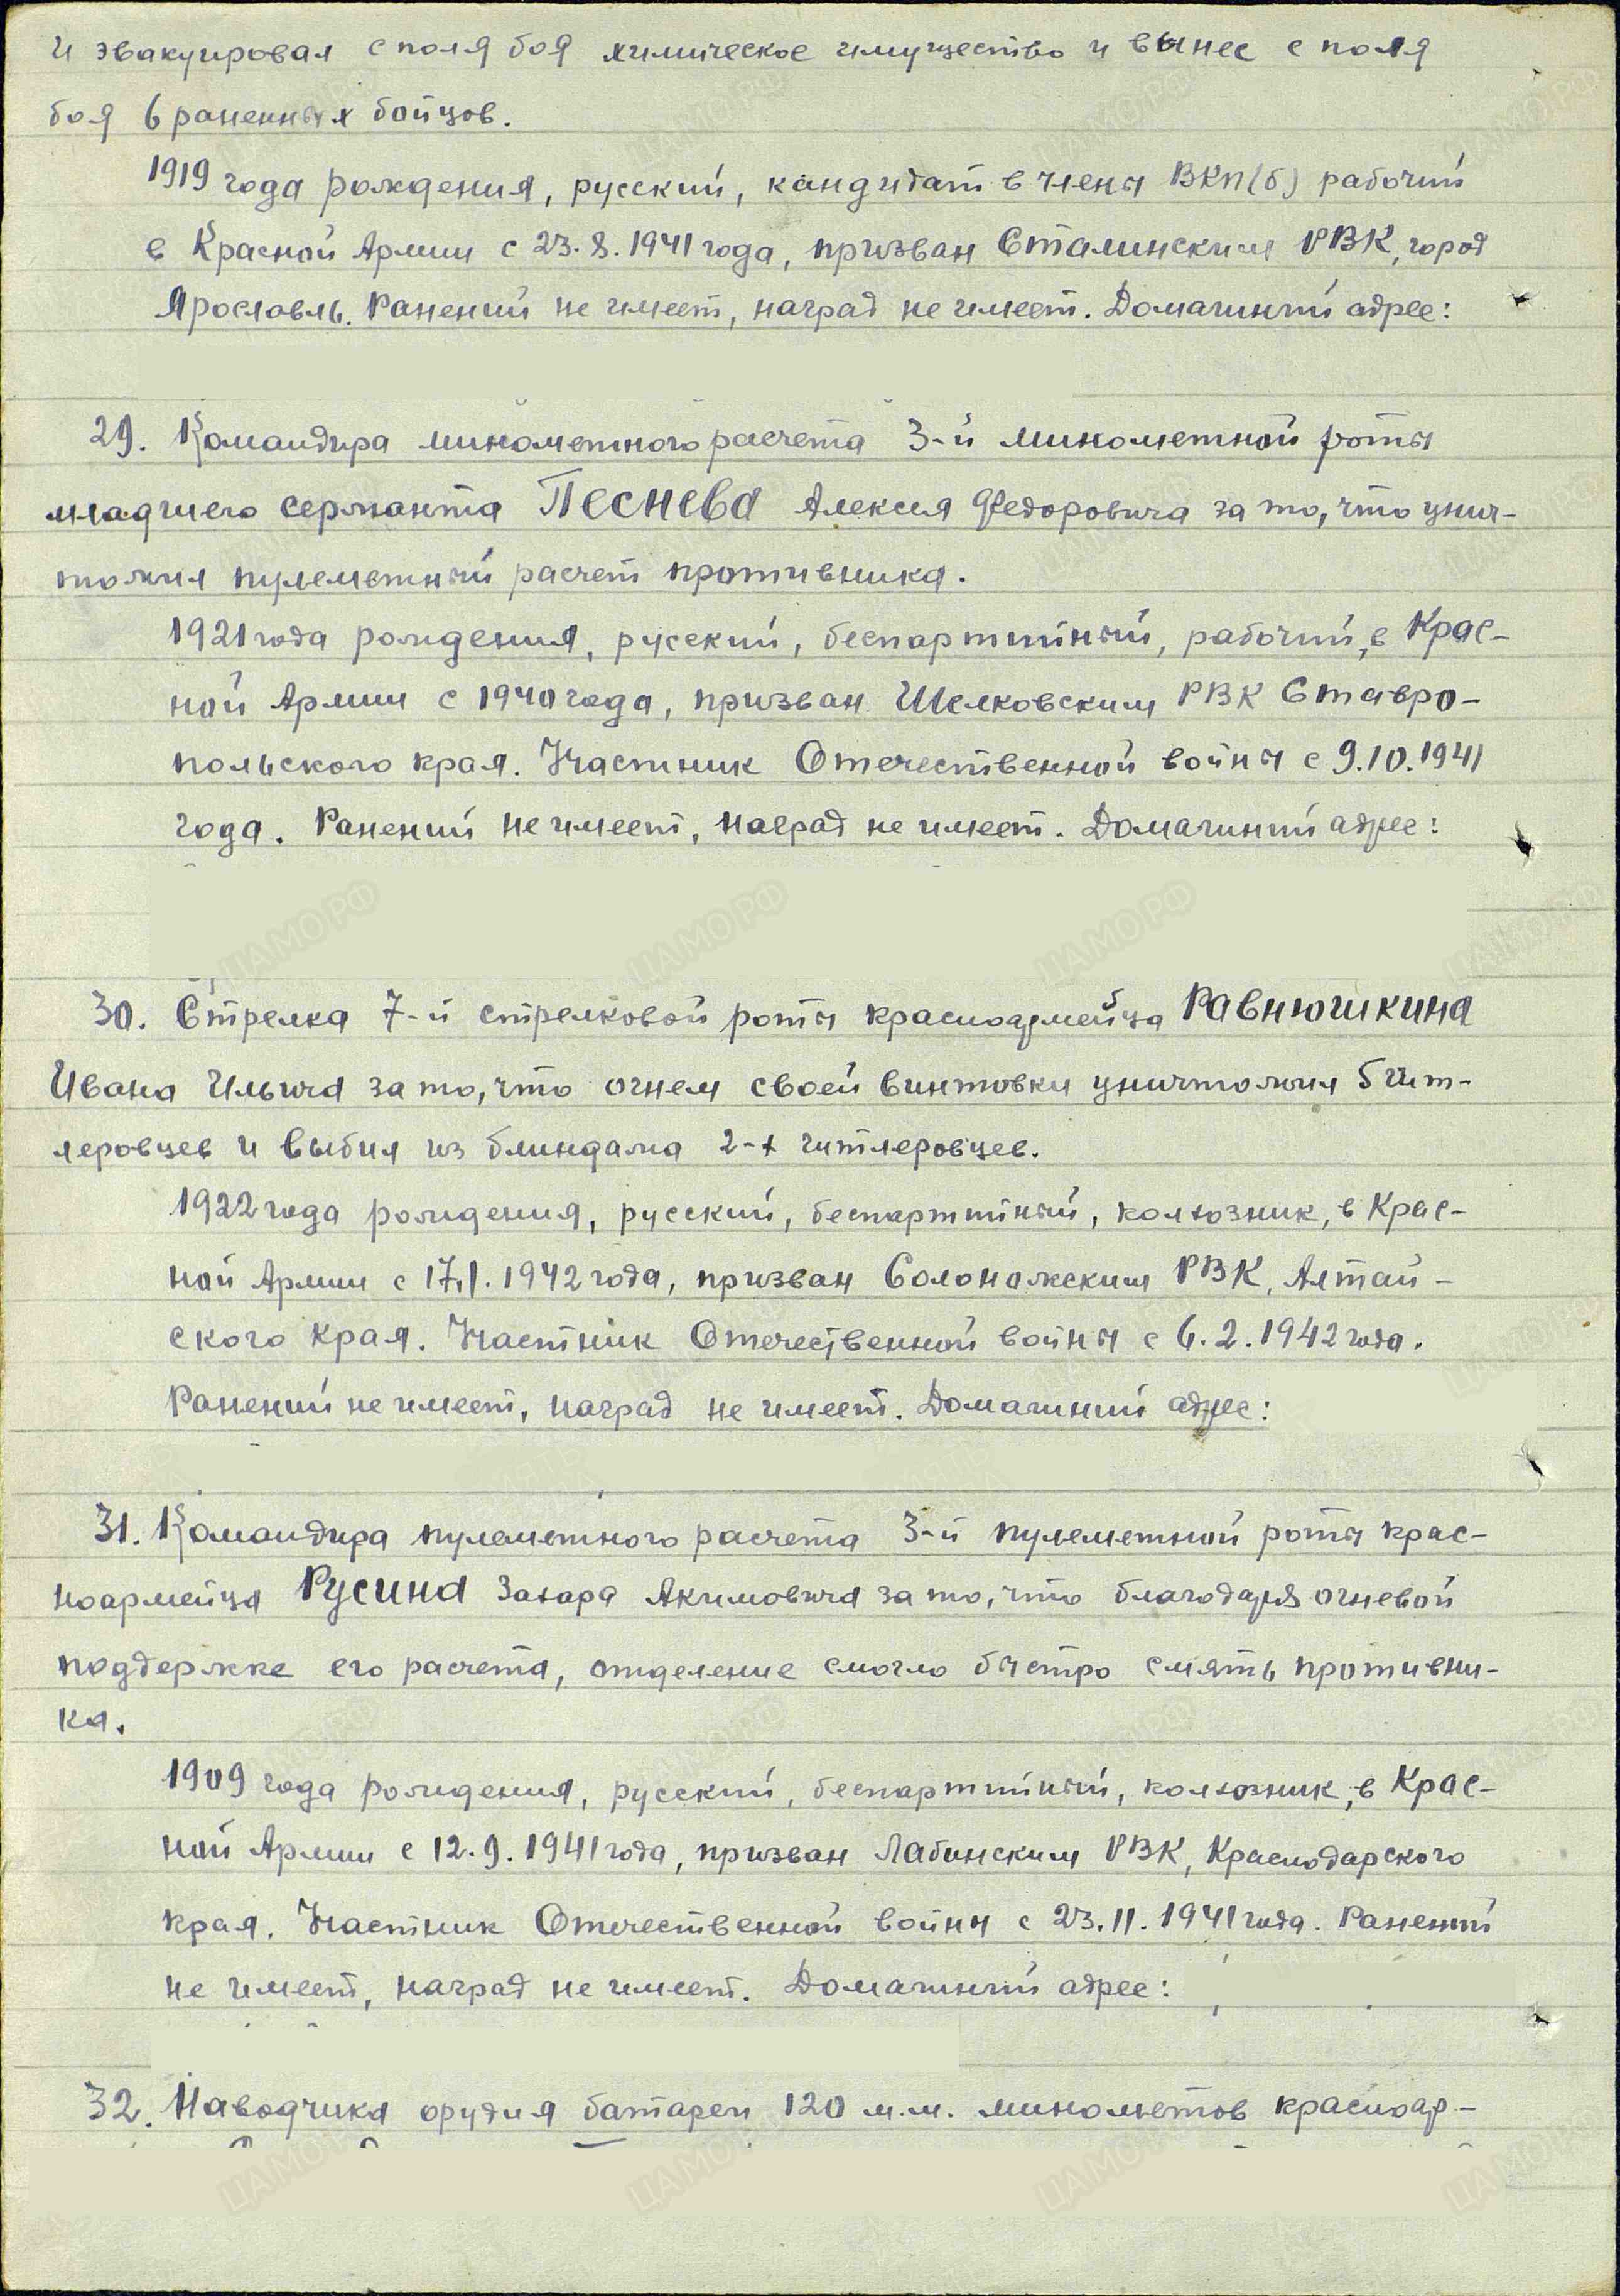 и эвакуировал с поля боя химическое имущество и вынес с поля
боя 6 раненных бойцов.
1919 года рождения, русский, кандидат в члены ВКП(б) рабочий
в Красной Армии с 23.8.1941 года, призван Сталинским РВК, город
Ярославль. Ранений не имеет, наград не имеет. Домашний адрес:
29. Командира минометного расчета 3-й минометной роты
младшего сержанта Песнева Алексея Федоровича за то, что унич-
тожил пулеметный расчет противника.
1921 года рождения, русский, беспартийный, рабочий, в Крас-
ной Армии с 1940 года, призван Шелковским РВК Ставро-
польского края. Участник Отечественной войны с 9.10.1941
года. Ранений не имеет, наград не имеет. Домашний адрес:
30. Стрелка 7-й стрелковой роты красноармейца Равнюшкина
Ивана Ильича за то, что огнем своей винтовки уничтожил 5 гит-
леровцев и выбил из блиндажа 2-х гитлеровцев.
1922 года рождения, русский, беспартийный, колхозник, в Крас-
ной Армии с 17.1.1942 года, призван Солонежским РВК, Алтай-
ского края. Участник Отечественной войны с 6.2.1942 года.
Ранений не имеет, наград не имеет. Домашний адрес:
31. Командира пулеметного расчета 3-й пулеметной роты крас-
ноармейца Русина Захара Акимовича за то, что благодаря огневой
поддержке его расчета, отделение смогло быстро смять противни-
ка.
1909 года рождения, русский, беспартийный, колхозник, в Крас-
ной Армии с 12.9.1941 года, призван Лабинским РВК, Краснодарского
края. Участник Отечественной войны с 23.11.1941 года. Ранений
не имеет, наград не имеет. Домашний адрес:
32. Наводчика орудия батареи 120 м.м. минометов красноар-